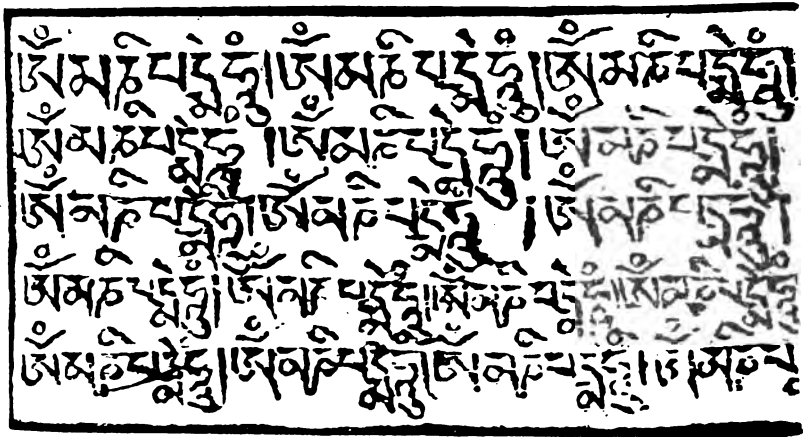 ཨོཾམཎིཔདྨེཧཱུྃ།ཨོཾམཎིཔདྨེཧཱུྃ།ཨོཾམཎིཔདྨེཧཱུྃ།
ཨོཾམཎིཔདྨེཧཱུྃ།ཨོཾམཎིཔདྨེཧཱུྃ།ཨོཾམཎིཔདྨེཧཱུྃ།
ཨོཾམཎིཔདྨེཧཱུྃ།ཨོཾམཎིཔདྨེཧཱུྃ།ཨོཾམཎིཔདྨེཧཱུྃ།
ཨོཾམཎིཔདྨེཧཱུྃ།ཨོཾམཎིཔདྨེཧཱུྃ།ཨོཾམཎིཔདྨེཧཱུྃ།ཨོཾམཎིཔདྨེཧཱུྃ
ཨོཾམཎིཔདྨེཧཱུྃ།ཨོཾམཎིཔདྨེཧཱུྃ།ཨོཾམཎིཔདྨེཧཱུྃ།མཎིཔ